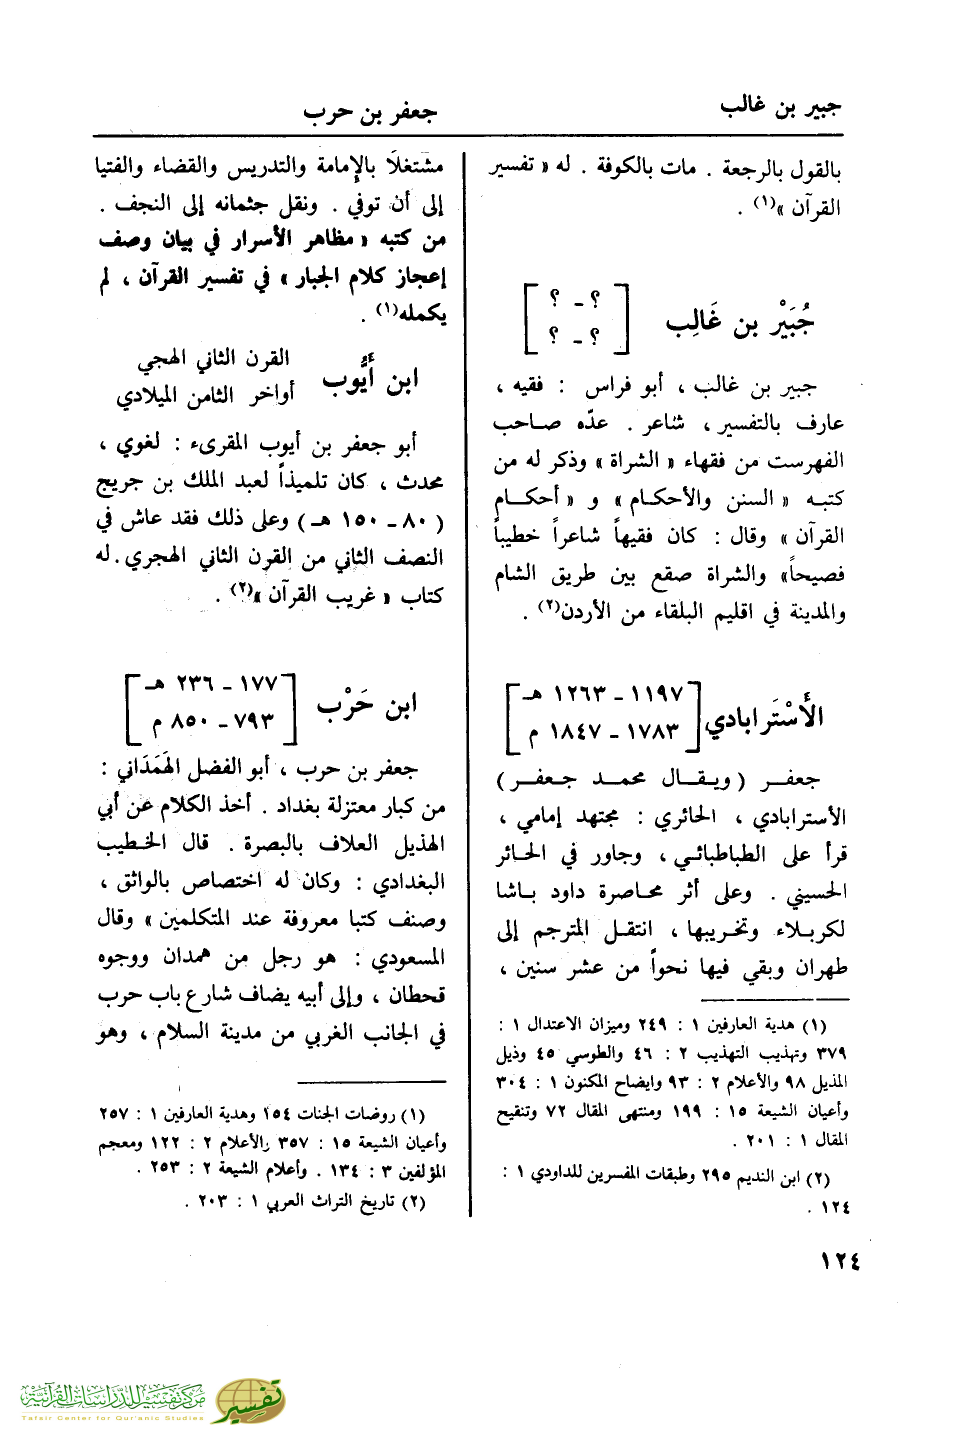 جبير بن غالب
جعفر بن حرب
بالقول بالرجعة . مات بالكوفة . له « تفسير
القرآن »(١) .
جُبَيْر بن غَالِب
؟ ـ ؟
؟ ـ ؟
جبير بن غالب ، أبو فراس : فقيه ،
عارف بالتفسير ، شاعر . عدّه صاحب
الفهرست من فقهاء « الشراة » وذكر له من
كتبه « السنن والأحكام » و « أحكام
القرآن » وقال : كان فقيهاً شاعراً خطيباً
فصيحاً» والشراة صقع بين طريق الشام
والمدينة في اقليم البلقاء من الأردن(٢) .
الأَسْتَرابادي
١١٩٧ ـ ١٢٦٣ هـ
١٧٨٣ ـ ١٨٤٧ م
جعفر (ويقال محمد جعفر)
الأسترابادي ، الحائري : مجتهد إمامي ،
قرأ على الطباطبائي ، وجاور في الحائر
الحسيني . وعلى أثر محاصرة داود باشا
لكربلاء وتخريبها ، انتقل المترجم إلى
طهران وبقي فيها نحواً من عشر سنين ،
(١) هدية العارفين ١ : ٢٤٩ وميزان الاعتدال ١ :
٣٧٩ وتهذيب التهذيب ٢ : ٤٦ والطوسي ٤٥ وذيل
المذيل ٩٨ والأعلام ٢ : ٩٣ وايضاح المكنون ١ : ٣٠٤
وأعيان الشيعة ١٥ : ١٩٩ ومنتهى المقال ٧٢ وتنقيح
المقال ١ : ٢٠١ .
(٢) ابن النديم ٢٩٥ وطبقات المفسرين للداودي ١ :
١٢٤ .
مشتغلاً بالإمامة والتدريس والقضاء والفتيا
إلى أن توفي . ونقل جثمانه إلى النجف .
من كتبه « مظاهر الأسرار في بيان وصف
إعجاز كلام الجبار » في تفسير القرآن ، لم
يكمله(١) .
ابن أَيُّوب
القرن الثاني الهجي
أواخر الثامن الميلادي
أبو جعفر بن أيوب المقرىء : لغوي ،
محدث ، كان تلميذاً لعبد الملك بن جريج
( ٨٠ ـ ١٥٠ هـ) وعلى ذلك فقد عاش في
النصف الثاني من القرن الثاني الهجري . له
كتاب « غريب القرآن »(٢) .
ابن حَرْب
١٧٧ ـ ٢٣٦ هـ
٧٩٣ ـ ٨٥٠ م
جعفر بن حرب ، أبو الفضل الهَمَدَاني :
من كبار معتزلة بغداد . أخذ الكلام عن أبي
الهذيل العلاف بالبصرة . قال الخطيب
البغدادي : وكان له اختصاص بالواثق ،
وصنف كتبا معروفة عند المتكلمين » وقال
المسعودي : هو رجل من همدان ووجوه
قحطان ، وإلى أبيه يضاف شارع باب حرب
في الجانب الغربي من مدينة السلام ، وهو
(١) روضات الجنات ١٥٤ وهدية العارفين ١ : ٢٥٧
وأعيان الشيعة ١٥ : ٣٥٧ والأعلام ٢ : ١٢٢ ومعجم
المؤلفين ٣ : ١٣٤ . وأعلام الشيعة ٢ : ٢٥٣ .
(٢) تاريخ التراث العربي ١ : ٢٠٣ .
١٢٤
مركز تفسير للدراسات القرآنية
Tafsir Center for Qur'anic Studies
تفسير